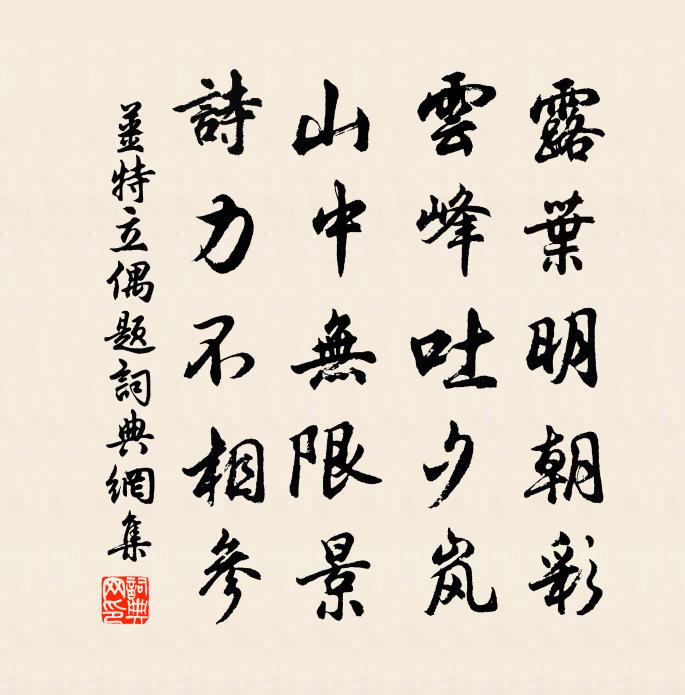 露葉明朝彩
雲峰吐夕岚
山中無限景
詩力不相參
姜特立偶题詞典網集
詞典網印